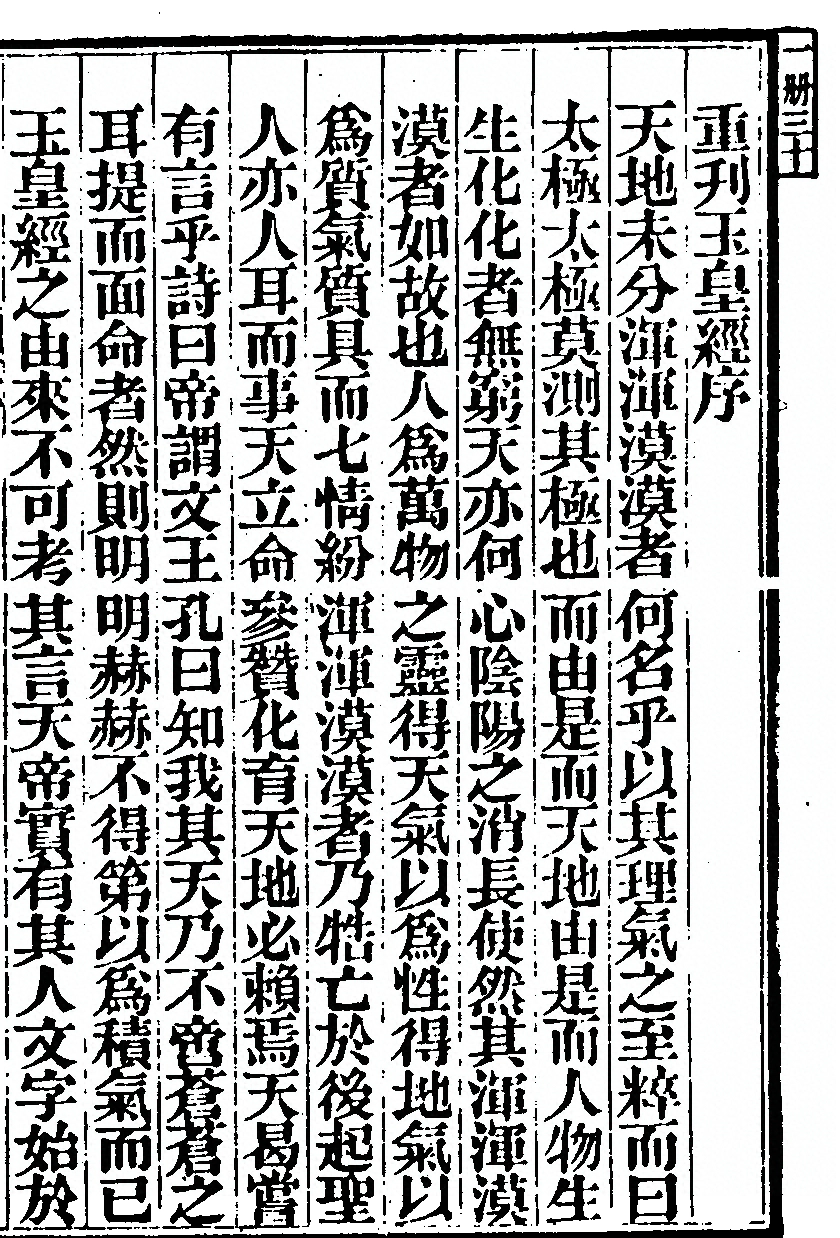 一册三十
重刋玉皇經序
天地未分渾渾漠漠者何名乎以其理氣之至粹而曰
太極太極莫測其極也而由是而天地由是而人物生
生化化者無窮天亦何心陰陽之消長使然其渾渾漠
漠者如故也人爲萬物之靈得天氣以爲性得地氣以
爲質氣質具而七情紛渾渾漠漠者乃牿亡於後起聖
人亦人耳而事天立命參贊化育天地必賴焉天曷嘗
有言乎詩曰帝謂文王孔曰知我其天乃不啻蒼蒼之
耳提而面命者然則明明赫赫不得第以爲積氣而已
玉皇經之由來不可考其言天帝實有其人文字始於